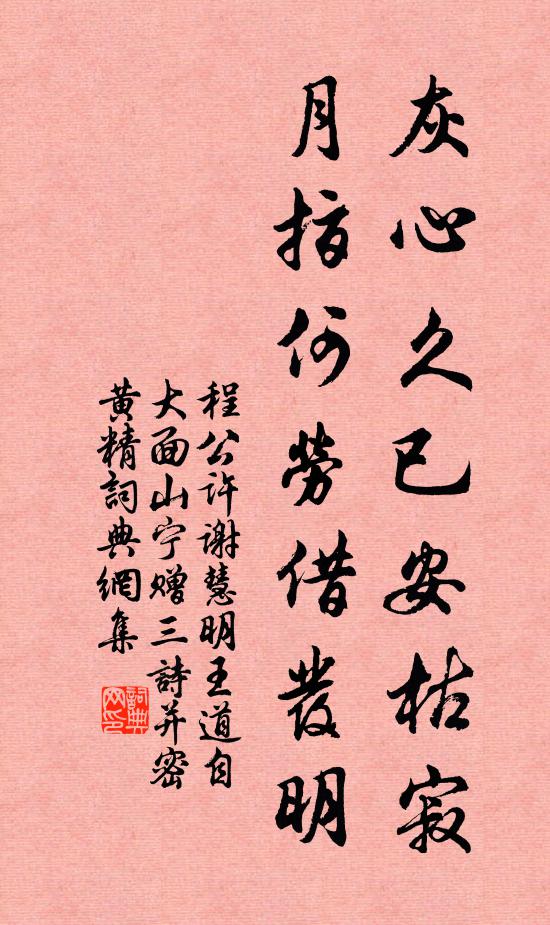 灰心久已安枯寂
月指何勞借發明
程公许谢慧明王道自
大面山宁赠三詩并密
黄精詞典網集
詞典
网印